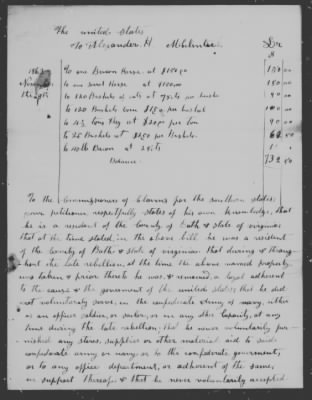 The united States
To Alexander. H. McClintic Dr
$
1863 To one Brown Horse at $150.00 150 00
November To one sorrel Horse at $150.00 150 00
the 9th To 120 Bushels of oats at 75 cts per bushel 90 00
To 120 Bushels Corn $1.50 per bushel 180 00
To 4½ tons Hay at $20.00 per ton 90 00
To 25 Bushels at $2.50 per Bushels 62 50
To 40 lb Bacon at 25 cts 10
Balance 732 50
To the Commissioners of Claims for the southern states:
your petitioner respectfully states of his own knowledge, that
he is a resident of the County of Bath & State of virginia
that at the time stated, in the above bill he was a resident
of the County of Bath & State of virginia that during & throug-
hout the late rebellion, at the time the above named property
was taken, & prior thereto he was, & remained, a loyal adherent
to the cause & the government of the united states; that he did
not voluntarily serve, in the confederate army or navy, either
as an officer soldier, or sailor, or in any other Capacity, at any
time during the late rebellion; that he never voluntarily fur-
nished any stores, supplies or other material aid to said
confederate army or navy, or to the confederate government,
or to any officer department, or adherent of the same,
in support thereof & that he never voluntarily accepted